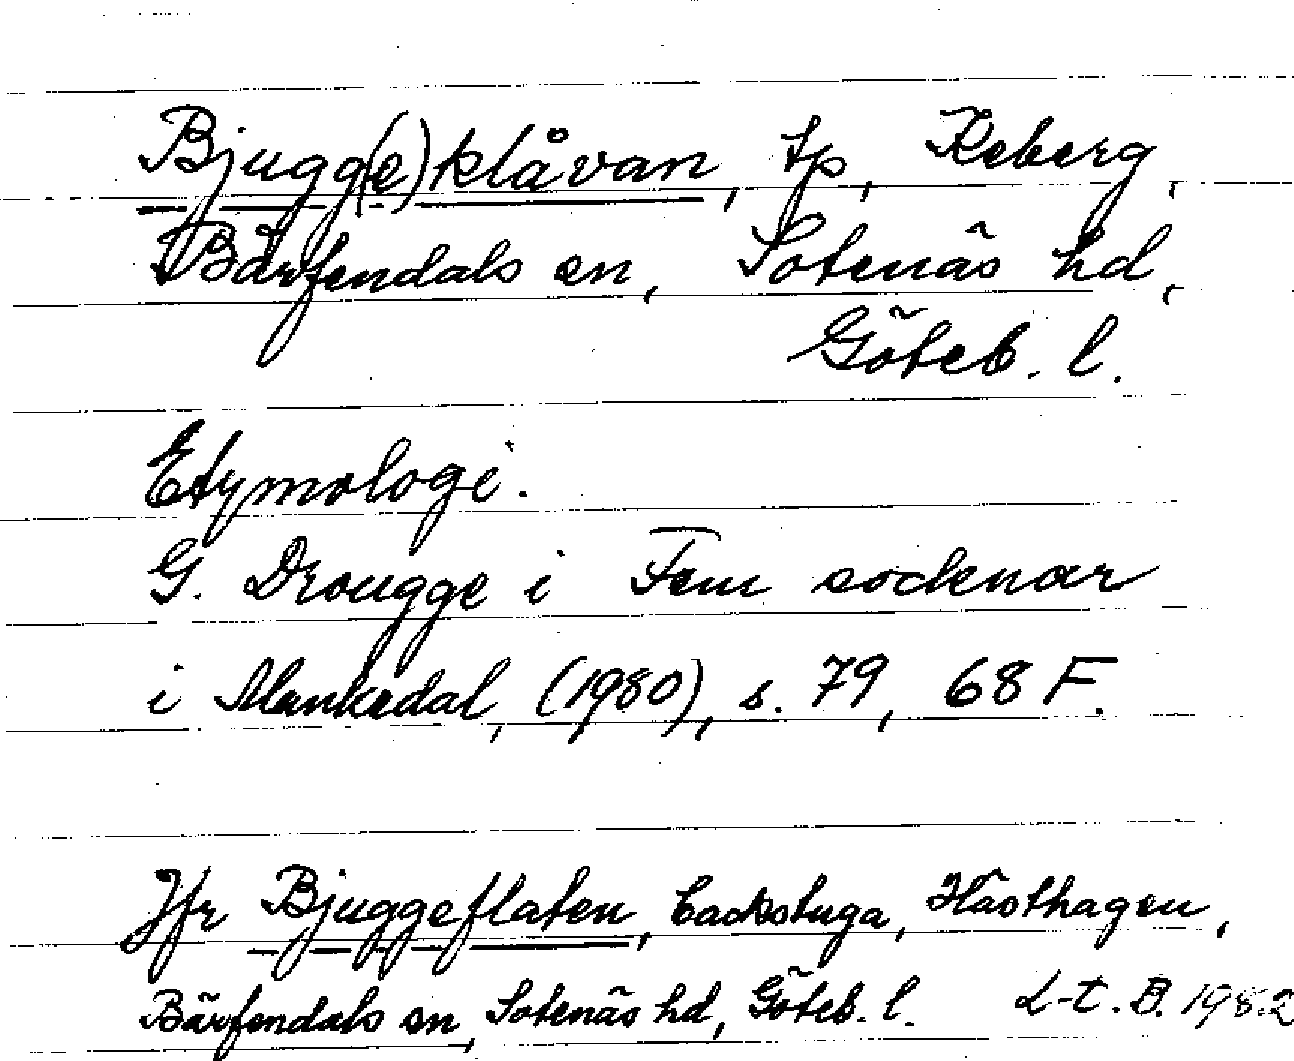 Bjugg(e)klåvan, tp, Keberg,
Bärfendals sn, Sotenäs hd,
Göteb. l.
Etymologi.
G. Drougge i Fem socknar
i Munkedal, (1980), s. 79, 68 F.
Jfr Bjuggeflaten, backstuga, Hästhagen,
Bärfendals sn, Sotenäs hd, Göteb. l. L-t. B. 1982